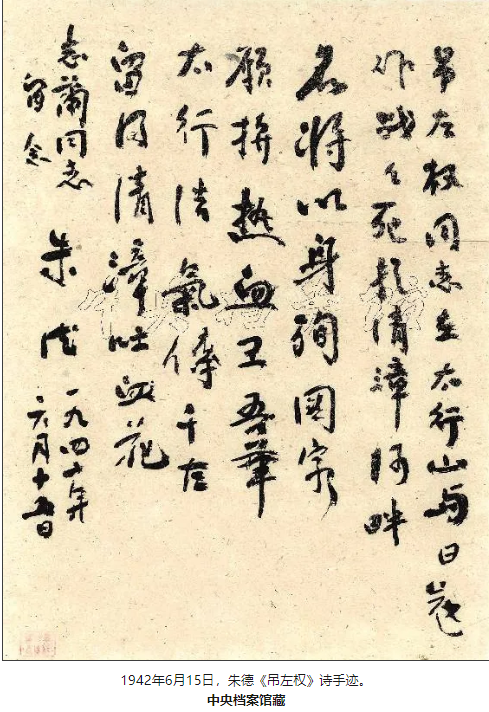 吊左权同志在太行山与日寇
作战々死於清漳河畔
名将以身殉国家
願拚热血卫吾華
太行浩氣傳千古
留得清漳吐血花
志蘭同志
留念
朱德
一九四二年
六月十五日
1942年6月15日，朱德《吊左权》诗手迹。
中央档案馆藏